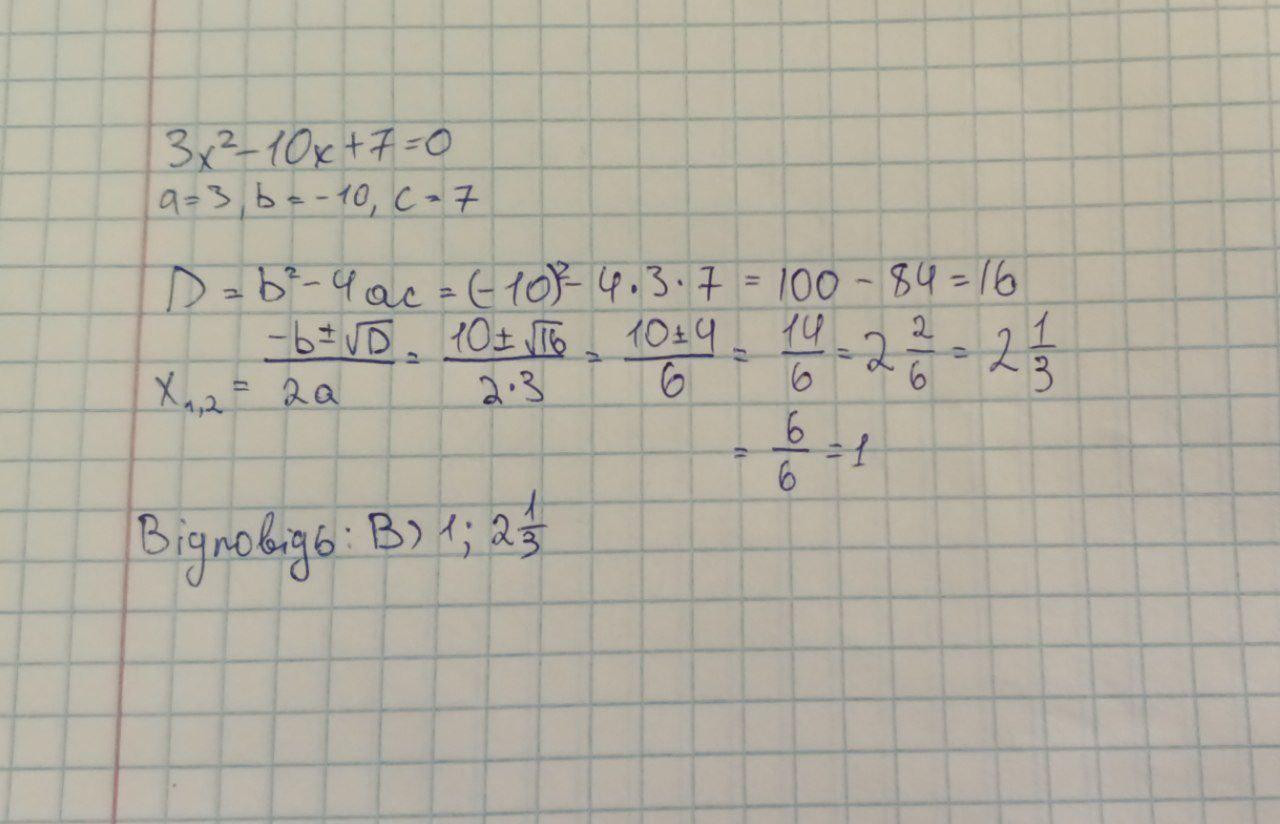 3x²-10x+7=0
a=3, b=-10, c=7
D = b²-4ac = (-10)²- 4·3·7 = 100 - 84 = 16
x₁,₂ = (-b±√D)/(2a) = (10±√16)/(2·3) = (10±4)/6 = 14/6 = 2 2/6 = 2 1/3
= 6/6 = 1
Відповідь: В) 1; 2 1/3